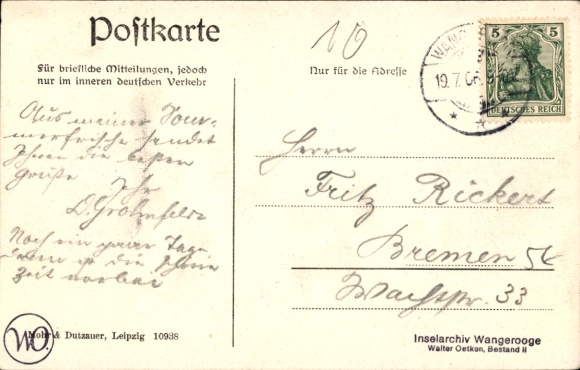 Postkarte
Für briefliche Mitteilungen, jedoch
nur im inneren deutschen Verkehr
Nur für die Adresse
10
5 5
DEUTSCHES REICH
19.7.06
Aus meiner Som-
merfrische sendet
Ihnen die besten
Grüße
Ihr
Noch ein paar Tage
die schöne
Zeit vorbei
Herrn
Fritz Rickert
Bremen
Wachtstr. 33
WO.
& Dutzauer, Leipzig 10938
Inselarchiv Wangerooge
Walter Oetken, Bestand II